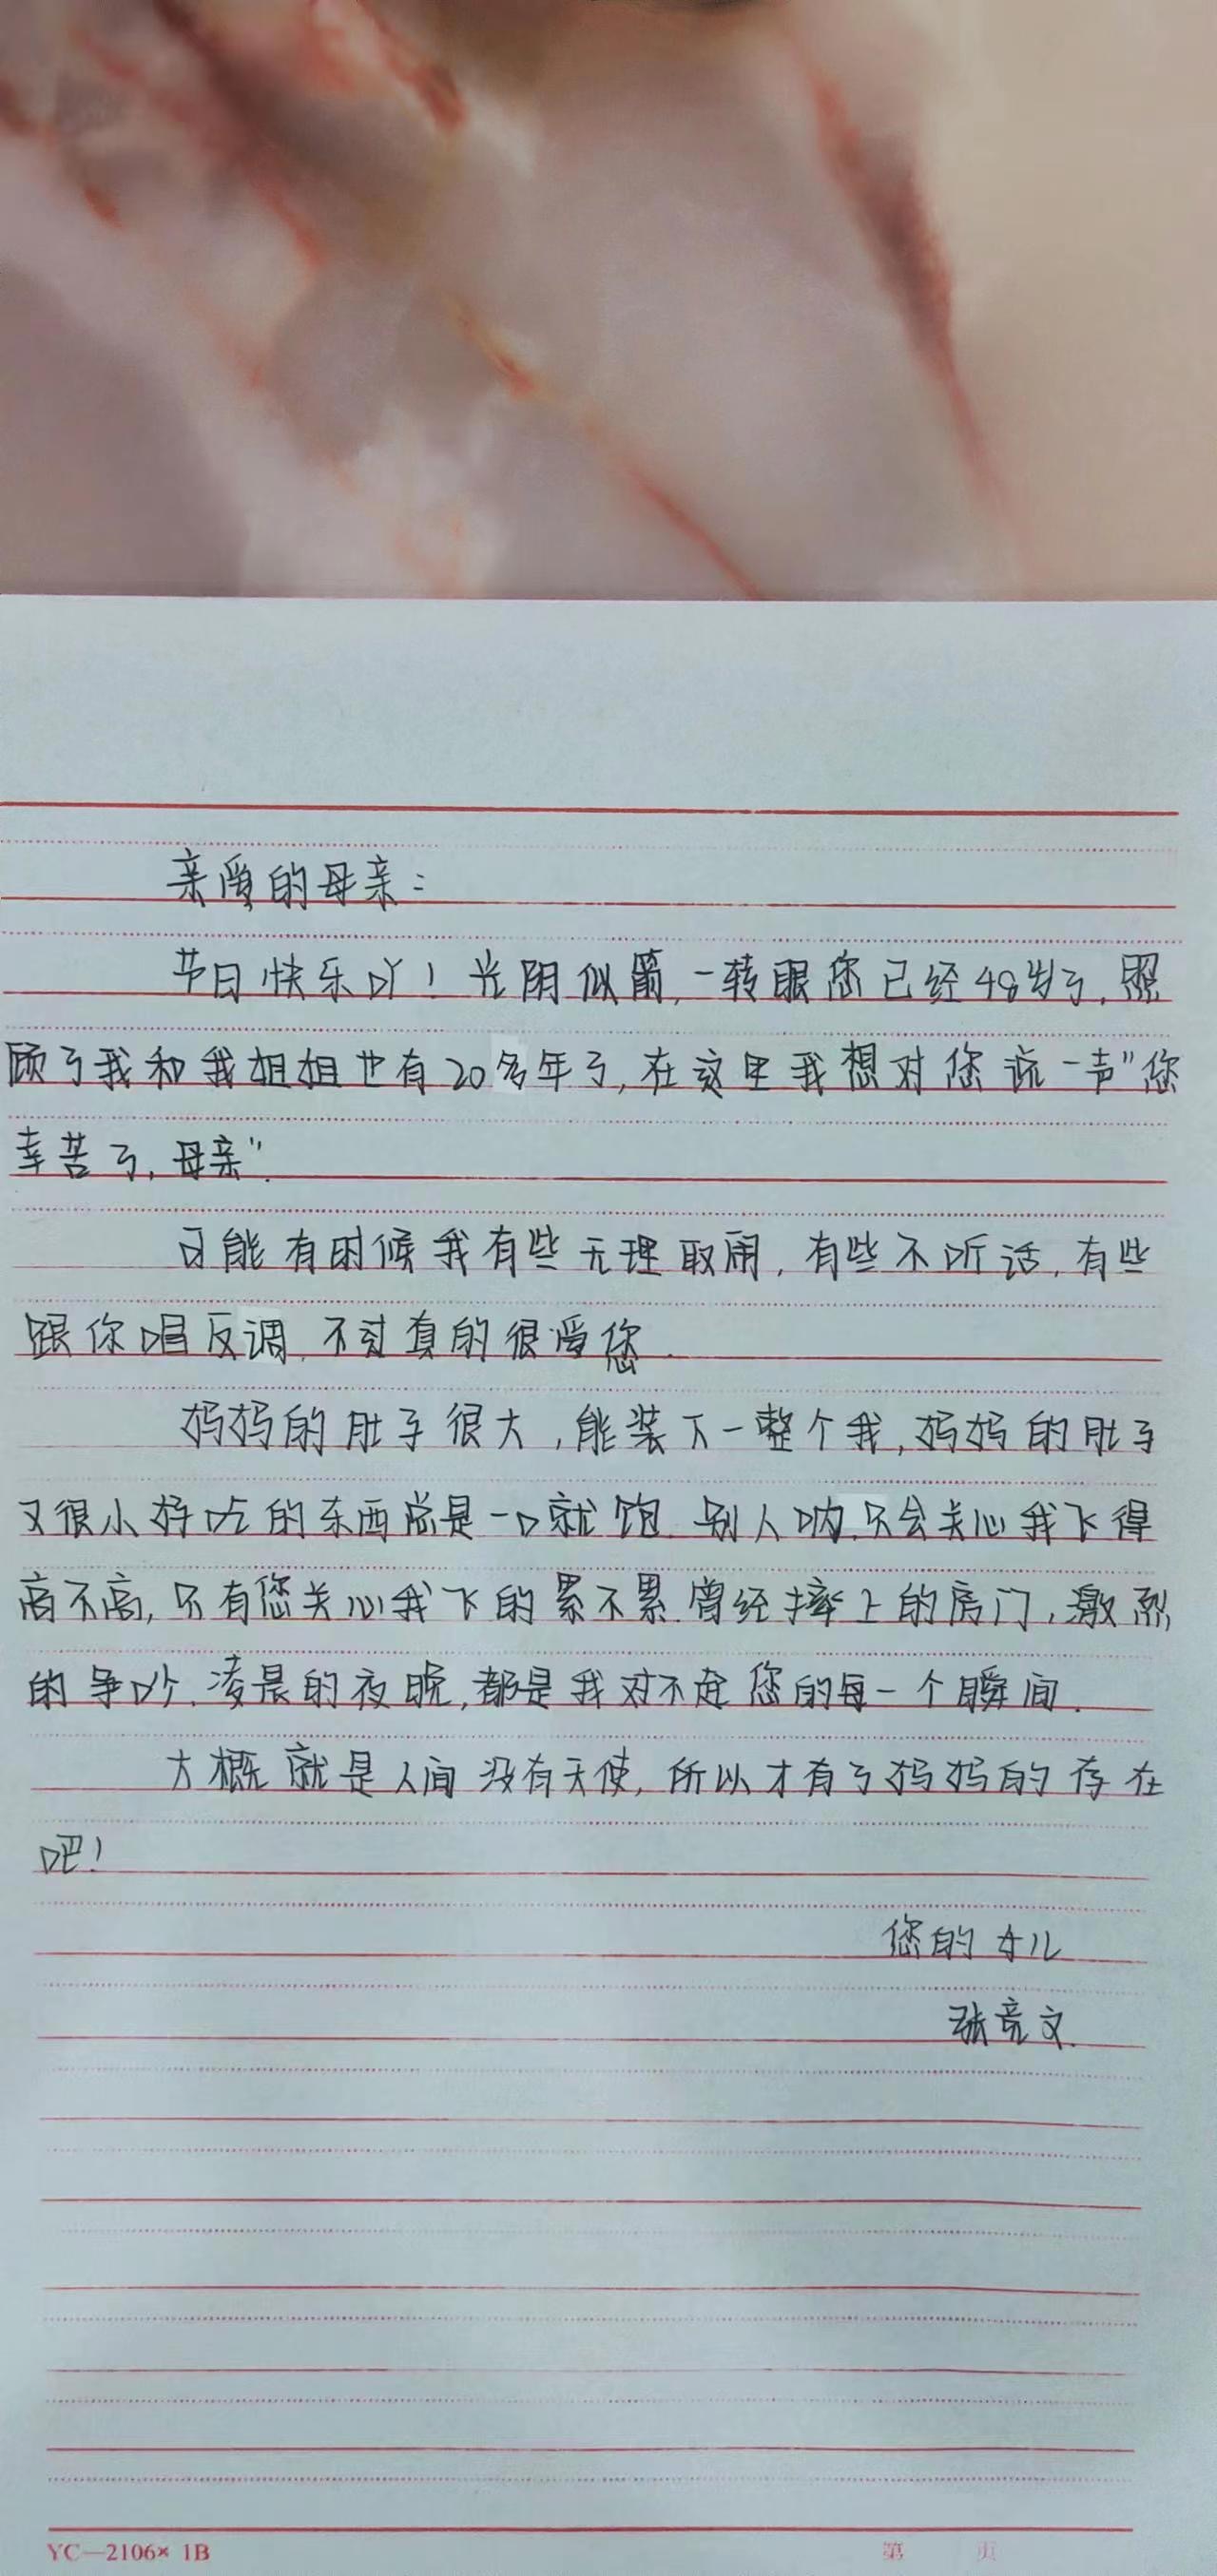 亲爱的母亲：
节日快乐吖！光阴似箭，一转眼您已经48岁了，照
顾了我和我姐姐也有20多年了，在这里我想对您说一声"您
辛苦了，母亲"．
可能有时候我有些无理取闹，有些不听话，有些
跟你唱反调，不过真的很爱您．
妈妈的肚子很大，能装下一整个我，妈妈的肚子
又很小好吃的东西总是一口就饱．别人呐，只会关心我飞得
高不高，只有您关心我飞的累不累．曾经摔上的房门，激烈
的争吵，凌晨的夜晚，都是我对不起您的每一个瞬间．
大概就是人间没有天使，所以才有了妈妈的存在
吧！
您的女儿
张竞文．
YC—2106× 1B 第 页